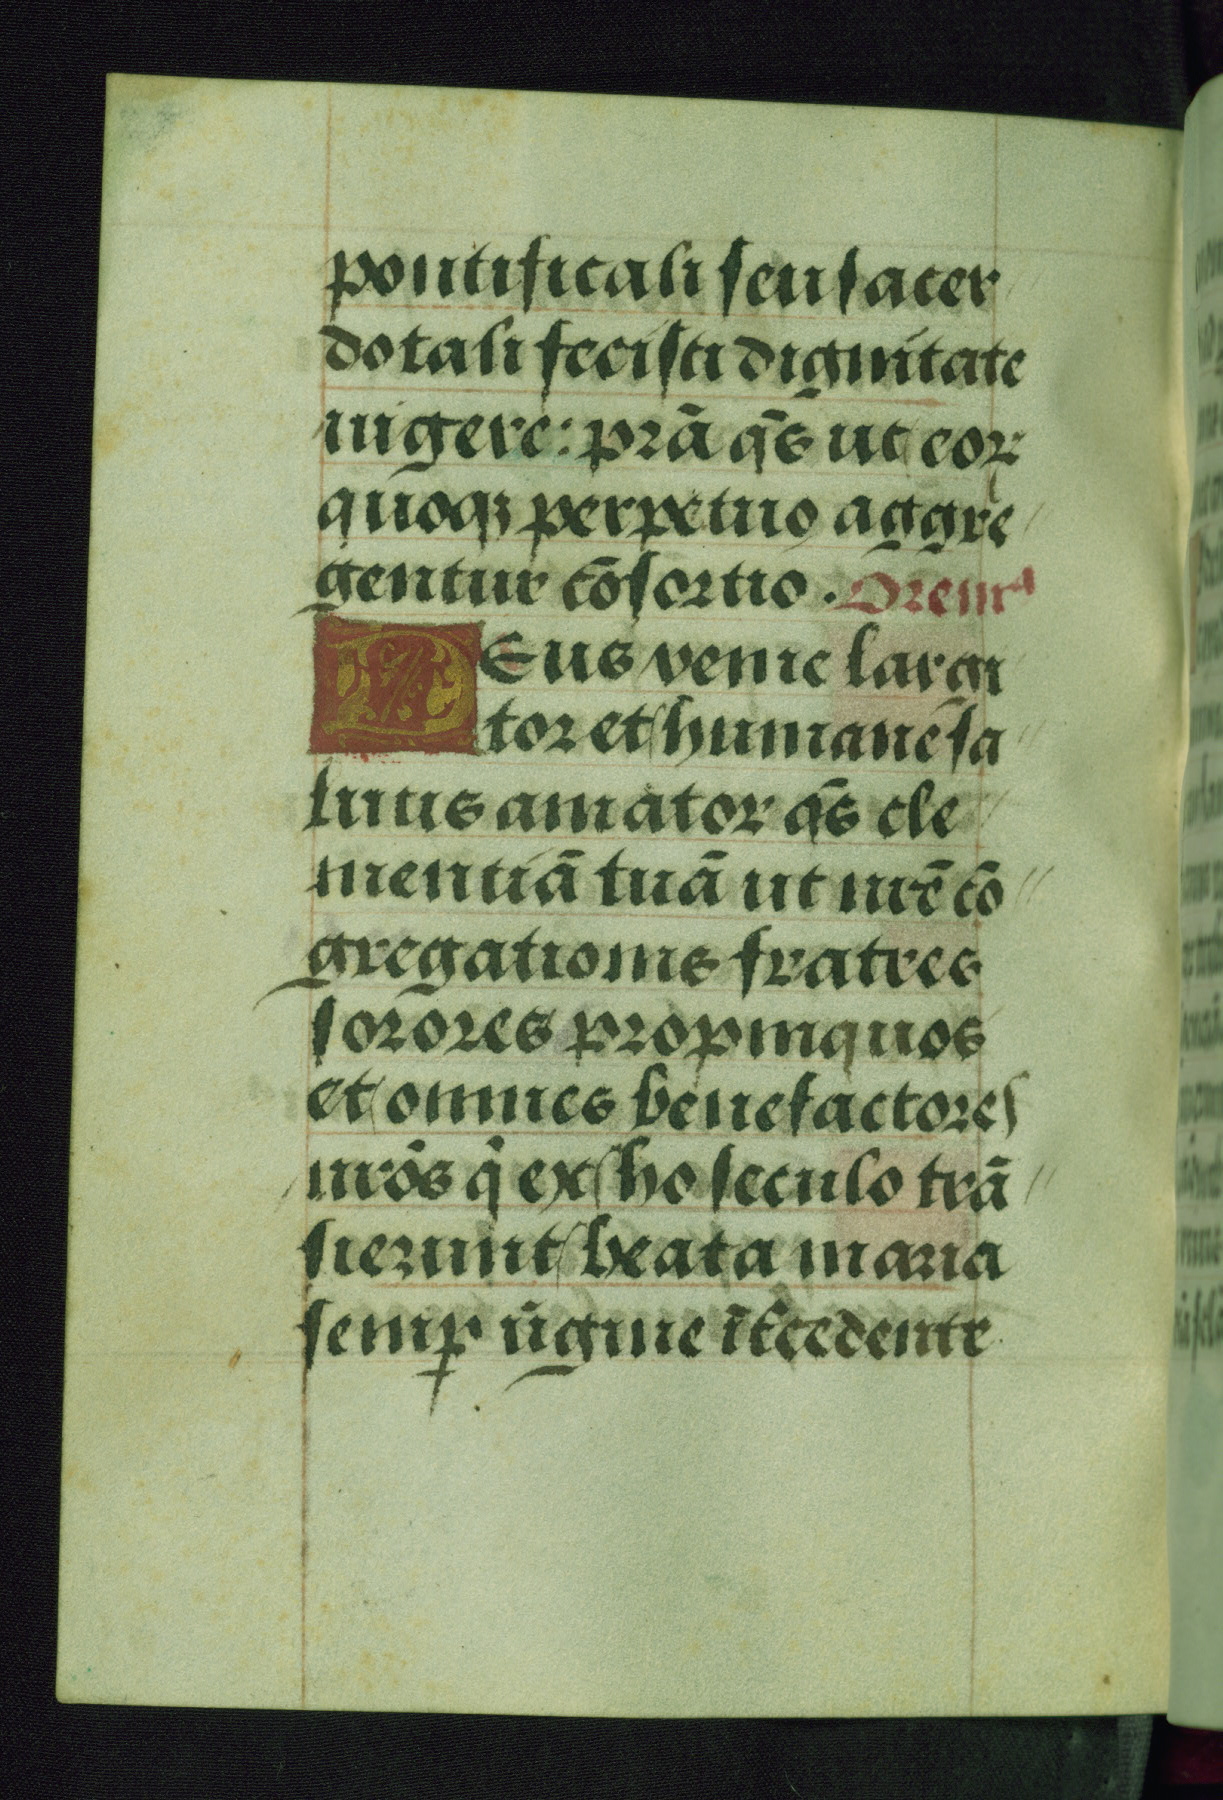 pontificali seu sacer
dotali fecisti dignitate
uigere: prā qs̄ ut eor
quoqꝫ perpetuo aggre
gentur cōsortio. Orem
Deus venie largi
tor et humane sa
lutis amator qs̄ cle
mentiā tuā ut nrē cō
gregationis fratres
sorores propinquos
et omnes benefactores
nrōs q̄ ex ho seculo trā
sierunt beata maria
semꝑ ūgine īt̄cedente